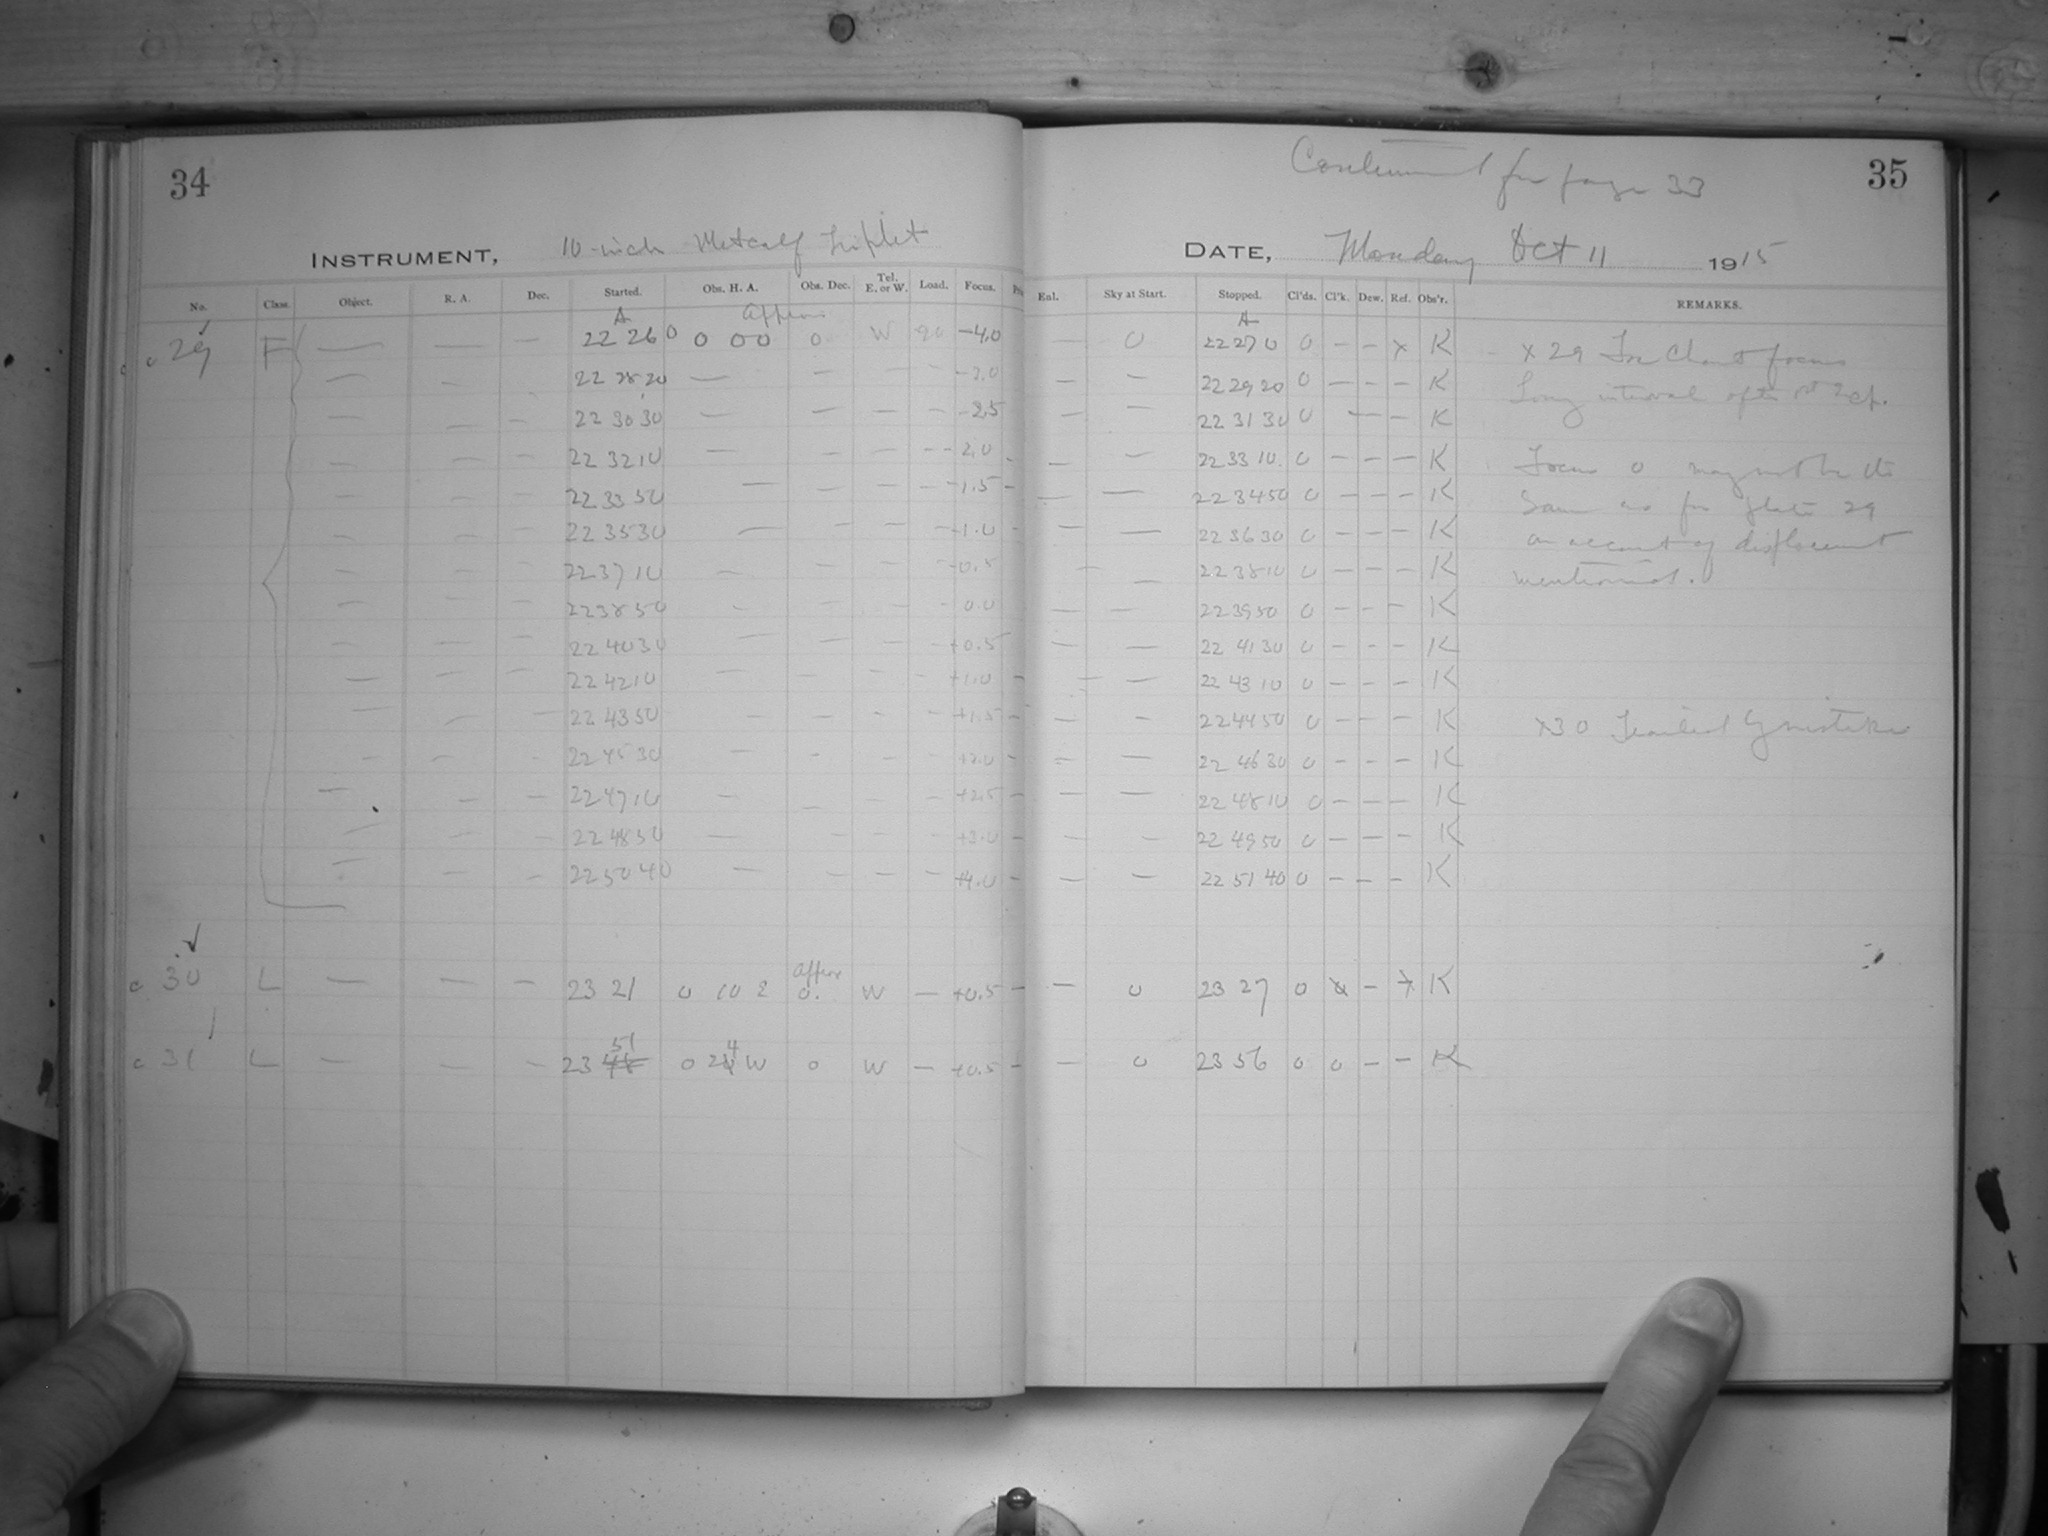 34
INSTRUMENT, 10-inch Metcalf Triplet
No. Class. Object. R. A. Dec. Started. Obs. H. A. Obs. Dec. Tel. E. or W. Load. Focus.
A
c 29 F — — — 22 26 0 0 00 0 W 20 -4.0
— — 22 28 20 — — — — -3.0
— — — 22 30 30 — — — — -2.5
— — — 22 32 10 — — — — - 2.0
— — — 22 33 50 — — — — -1.5
— — — 22 35 30 — — — — -1.0
— — — 22 37 10 — — — — -0.5
— — — 22 38 50 — — — — 0.0
— — — 22 40 30 — — — — +0.5
— — — 22 42 10 — — — — +1.0
— — — 22 43 50 — — — — +1.5
— — — 22 45 30 — — — — +2.0
— — — 22 47 10 — — — — +2.5
— — — 22 48 50 — — — — +3.0
— — — 22 50 40 — — — — +4.0
c 30 L — — — 23 21 0 10 2 0. W — +0.5 –
51 4
c 31 L — — — 23 0 2 W 0 W — +0.5 –
for page 33
35
DATE, Monday Oct 11 1915
Enl. Sky at Start. Stopped. Cl'ds. Cl'k. Dew. Ref. Obs'r. REMARKS.
A
— 0 22 27 0 0 – – x K
— — 22 29 20 0 – – – K
— — 22 31 30 0 – – – K
— — 22 33 10 0 – – – K
— — 22 34 50 0 – – – K
— — 22 36 30 0 – – – K
— — 22 38 10 0 – – – K
— — 22 39 50 0 – – – K
— — 22 41 30 0 – – – K
— — 22 43 10 0 – – – K
— — 22 44 50 0 – – – K
— — 22 46 30 0 – – – K
— — 22 48 10 0 – – – K
— — 22 49 50 0 – – – K
— — 22 51 40 0 – – – K
— 0 23 27 0 x – x K
— 0 23 56 0 0 – – K
x 29 focus
Long interval after 1st
Focus 0 may not be the
same as for plate 29
on account of displacement
mentioned.
x30 Trailed by mistake